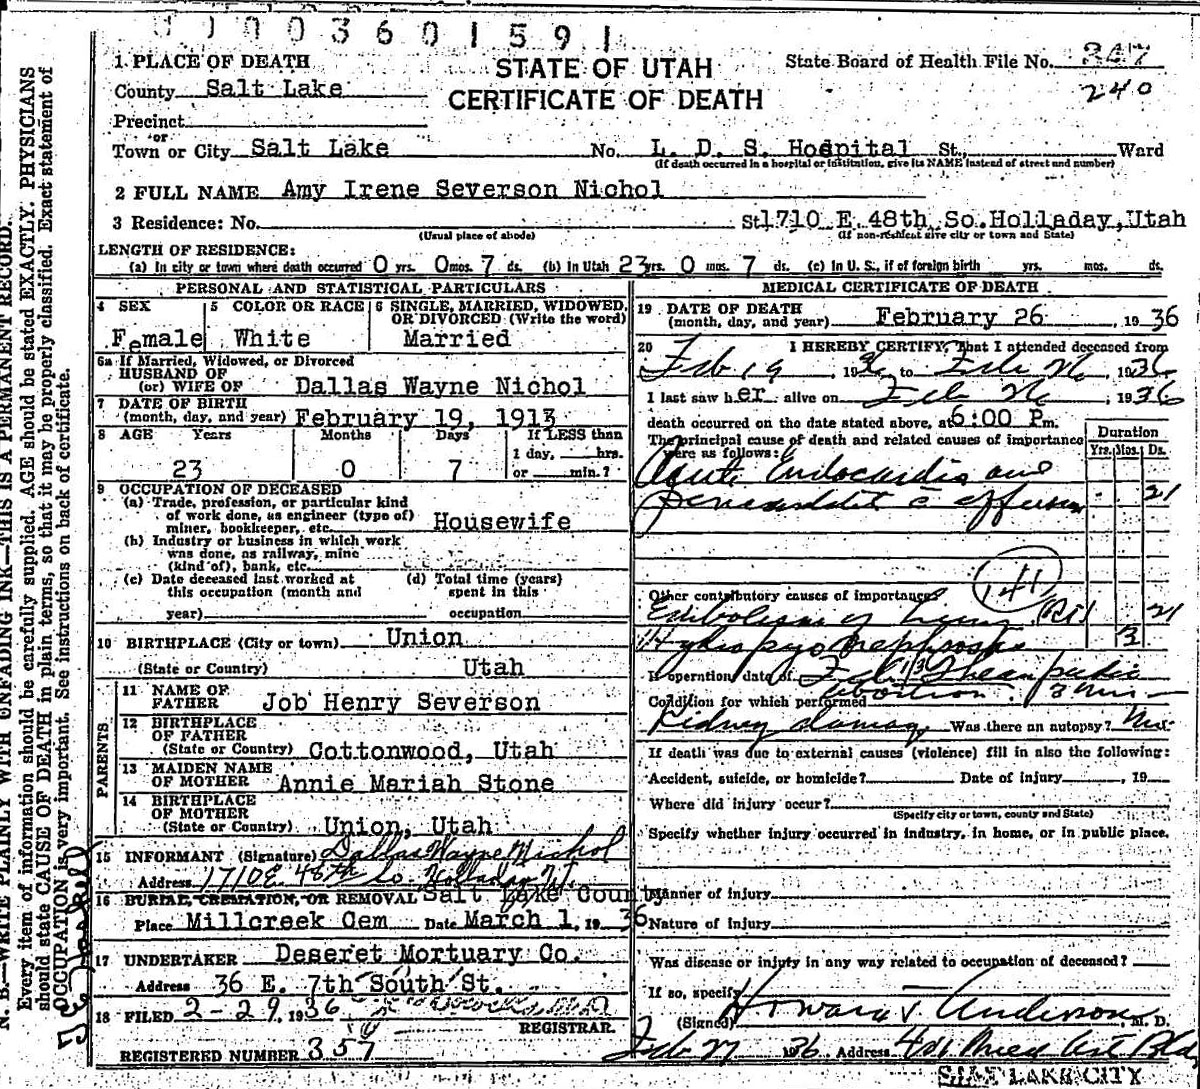 1003601591
1 PLACE OF DEATH
STATE OF UTAH
CERTIFICATE OF DEATH
State Board of Health File No. 347
240
County Salt Lake
Precinct
or
Town or City Salt Lake No. L. D. S. Hospital St., Ward
(If death occurred in a hospital or institution, give its NAME instead of street and number)
2 FULL NAME Amy Irene Severson Nichol
3 Residence: No. St. 1710 E. 48th So. Holladay, Utah
(Usual place of abode) (If non-resident give city or town and State)
LENGTH OF RESIDENCE:
(a) In city or town where death occurred 0 yrs. 0 mos. 7 ds. (b) In Utah 23 yrs. 0 mos. 7 ds. (c) In U. S., if of foreign birth yrs. mos. ds.
PERSONAL AND STATISTICAL PARTICULARS
4 SEX 5 COLOR OR RACE 6 SINGLE, MARRIED, WIDOWED, OR DIVORCED (Write the word)
Female White Married
6a If Married, Widowed, or Divorced
HUSBAND OF
(or) WIFE OF Dallas Wayne Nichol
7 DATE OF BIRTH
(month, day, and year) February 19, 1913
8 AGE Years Months Days If LESS than
1 day, hrs.
23 0 7 or min.?
9 OCCUPATION OF DECEASED
(a) Trade, profession, or particular kind
of work done, as engineer (type of)
miner, bookkeeper, etc. Housewife
(b) Industry or business in which work
was done, as railway, mine
(kind of), bank, etc.
(c) Date deceased last worked at (d) Total time (years)
this occupation (month and spent in this
year) occupation
10 BIRTHPLACE (City or town) Union
(State or Country) Utah
PARENTS
11 NAME OF
FATHER Job Henry Severson
12 BIRTHPLACE
OF FATHER
(State or Country) Cottonwood, Utah
13 MAIDEN NAME
OF MOTHER Annie Mariah Stone
14 BIRTHPLACE
OF MOTHER
(State or Country) Union, Utah
15 INFORMANT (Signature) Dallas Wayne Nichol
Address 1710 E. 48th So. Holladay Ut.
16 BURIAL, CREMATION, OR REMOVAL Salt Lake County
Place Millcreek Cem Date March 1, 1936
17 UNDERTAKER Deseret Mortuary Co.
Address 36 E. 7th South St.
18 FILED 2-29, 1936
REGISTRAR.
REGISTERED NUMBER 357
MEDICAL CERTIFICATE OF DEATH
19 DATE OF DEATH
(month, day, and year) February 26, 1936
20 I HEREBY CERTIFY, That I attended deceased from
Feb 19 1936 to Feb 1936
I last saw her alive on Feb , 1936
death occurred on the date stated above, at 6:00 P.m.
The principal cause of death and related causes of importance
were as follows:
Duration
Yrs. Mos. Ds.
Acute Endocarditis and
Pericarditis c effusion 21
141
Other contributory causes of importance:
Embolism of Lung (Rt) 21
Hydropyonephrosis 3
If operation, date of Feb Therapeutic
abortion 3 mos
Condition for which performed
Kidney damage Was there an autopsy?
If death was due to external causes (violence) fill in also the following:
Accident, suicide, or homicide? Date of injury , 19
Where did injury occur?
(Specify city or town, county and State)
Specify whether injury occurred in industry, in home, or in public place.
Manner of injury
Nature of injury
Was disease or injury in any way related to occupation of deceased?
If so, specify
(Signed) Howard T Anderson, M. D.
Feb 27 1936 Address Med Art Bld
SALT LAKE CITY
N. B.—WRITE PLAINLY WITH UNFADING INK—THIS IS A PERMANENT RECORD.
Every item of information should be carefully supplied. AGE should be stated EXACTLY. PHYSICIANS
should state CAUSE OF DEATH in plain terms, so that it may be properly classified. Exact statement of
OCCUPATION is very important. See instructions on back of certificate.